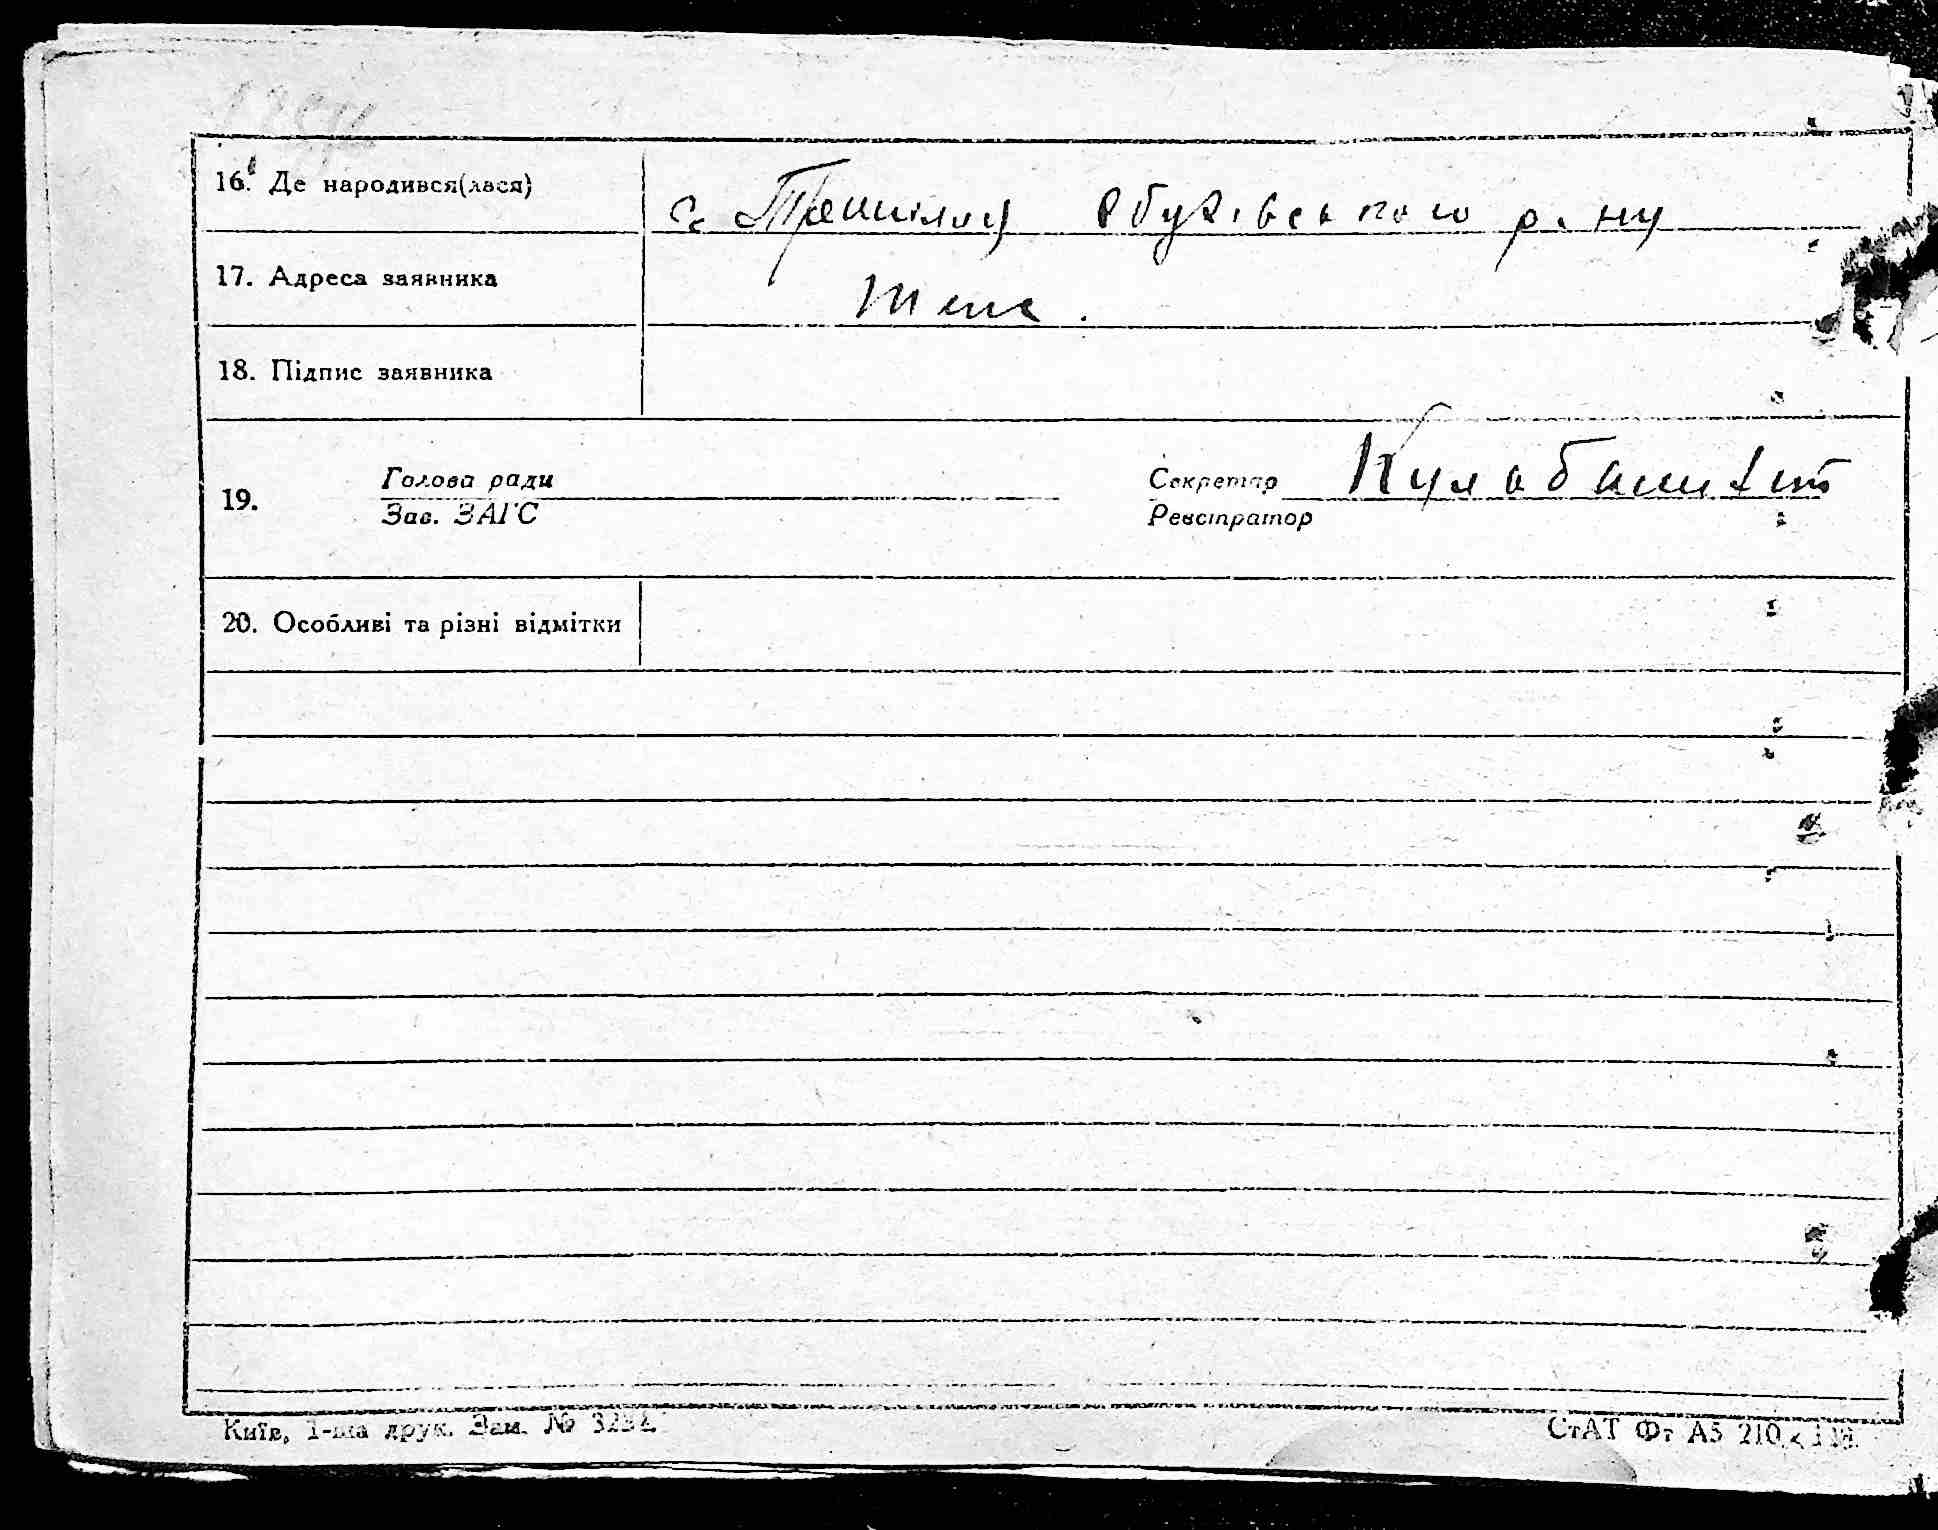 16. Де народився(лася) с. Трипілля Обухівського р-ну
17. Адреса заявника
18. Підпис заявника
19. Голова ради Секретар
Зав. ЗАГС Реєстратор
20. Особливі та різні відмітки
Київ, 1-ша друк. Зам. №
СтАТ Фт А5 210